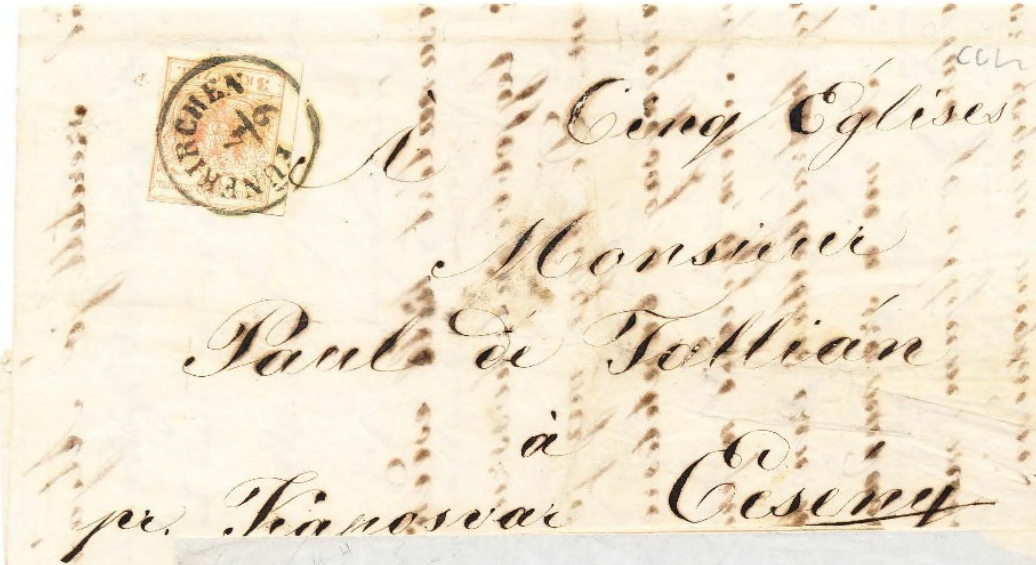 FÜNFKIRCHEN
7/6
À Cinq Églises
Monsieur
Paul de Tallián
à
pr. Kaposvar Ecseny